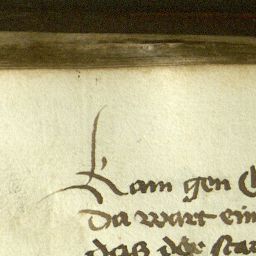 Kam gen
Da wart ein
das der star